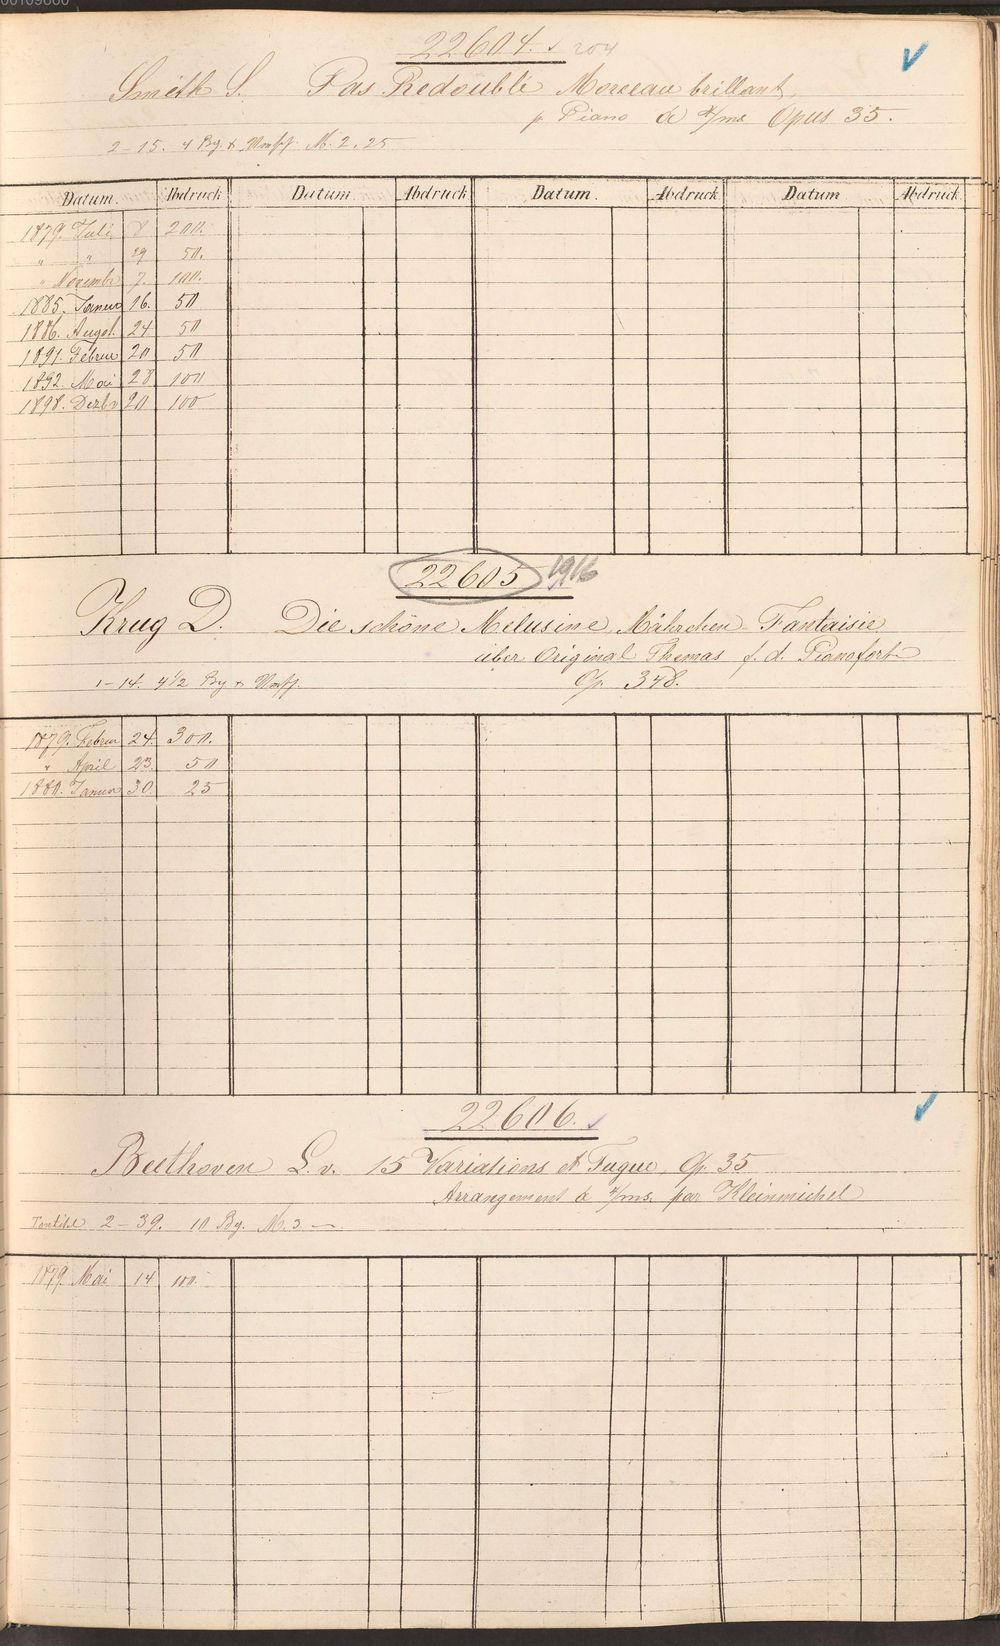 22604. 204
Smith S. Pas Redoublé Morceau brillant,
p. Piano à 4/ms Opus 35.
2-15. 4 Bg. & M. 2.25
Datum. Abdruck Datum. Abdruck Datum. Abdruck Datum Abdruck
1879. Juli 8 200.
" " 29 50.
" Novembr 7. 100.
1885. Januar 16. 50
1886. Augst. 24 50
1891. Februar 20 50
1892. Mai 28 100
1898. Dezbr 20 100
22605 1916
Krug D. Die schöne Melusine, Mährchen-Fantaisie
über Original Themas f. d. Pianoforte
1-14. 4 1/2 Bg & Op. 348.
1879. Februar 24. 300.
" April 23. 50
1880. Januar 30. 25
22606.
Beethoven L. v. 15 Variations et Fugue, Op. 35
Arrangement à 4/ms. par Kleinmichel
2-39. 10 Bg. M. 3 —
1879. Mai 14 100.